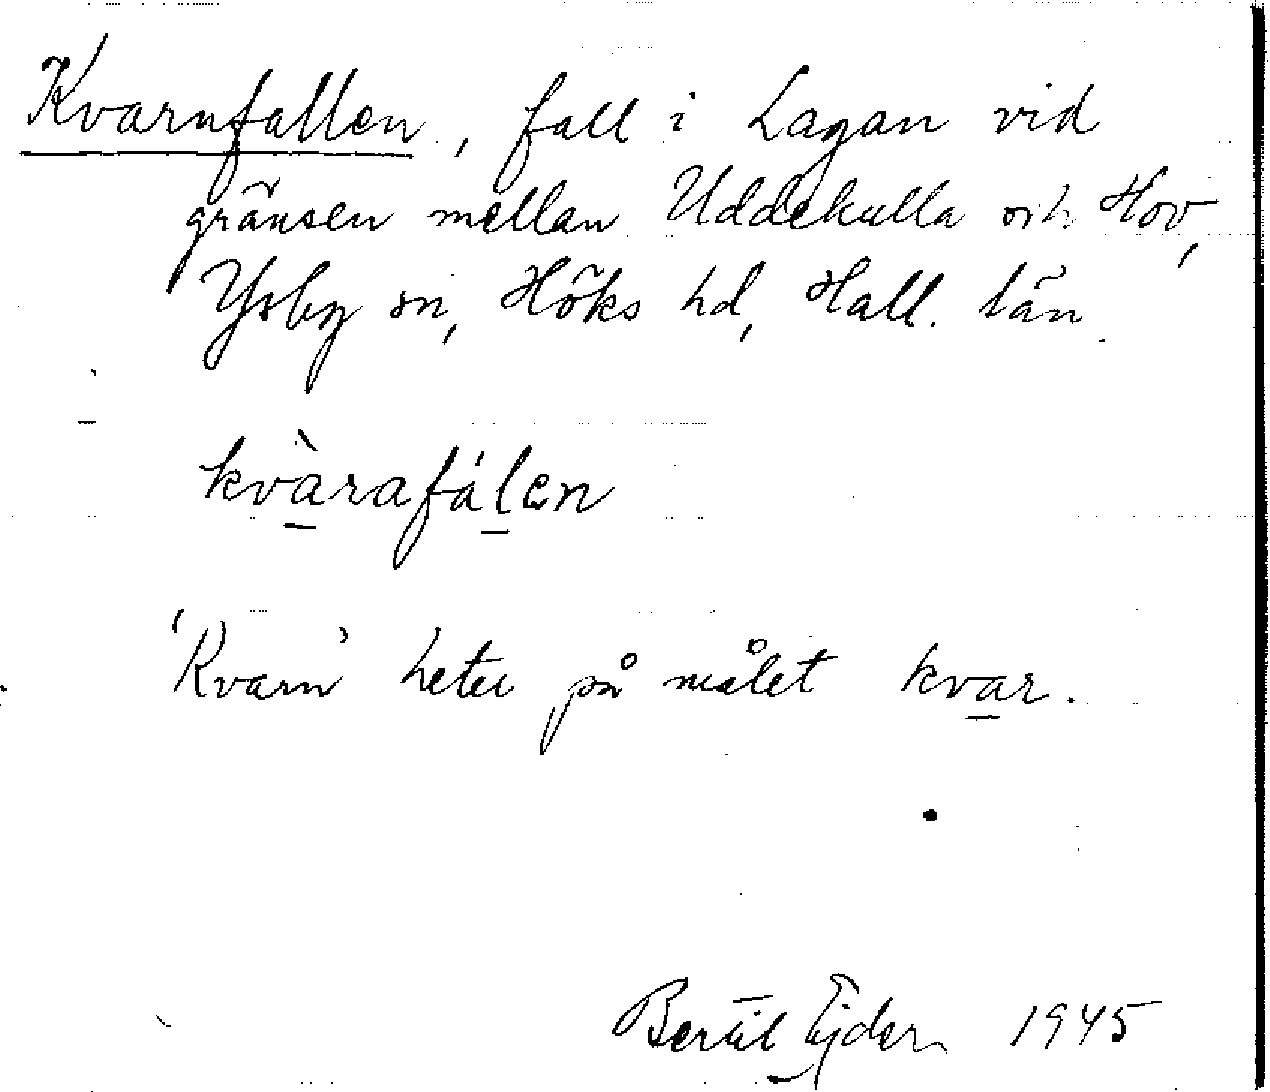 Kvarnfallen, fall i Lagan vid
gränsen mellan Uddekulla och Hov,
Ysby sn, Höks hd, Hall. län.
kvàrafálen
'Kvarn' heter på målet kvar.
Bertil Ejder 1945